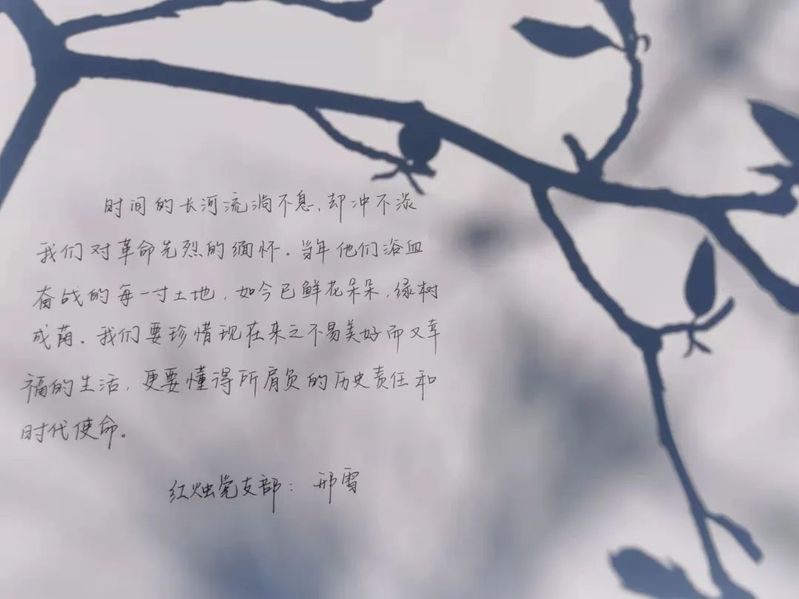 时间的长河流淌不息，却冲不淡
我们对革命先烈的缅怀。当年他们浴血
奋战的每一寸土地，如今已鲜花朵朵，绿树
成荫。我们要珍惜现在来之不易美好而又幸
福的生活，更要懂得所肩负的历史责任和
时代使命。
红烛党支部：邢雪